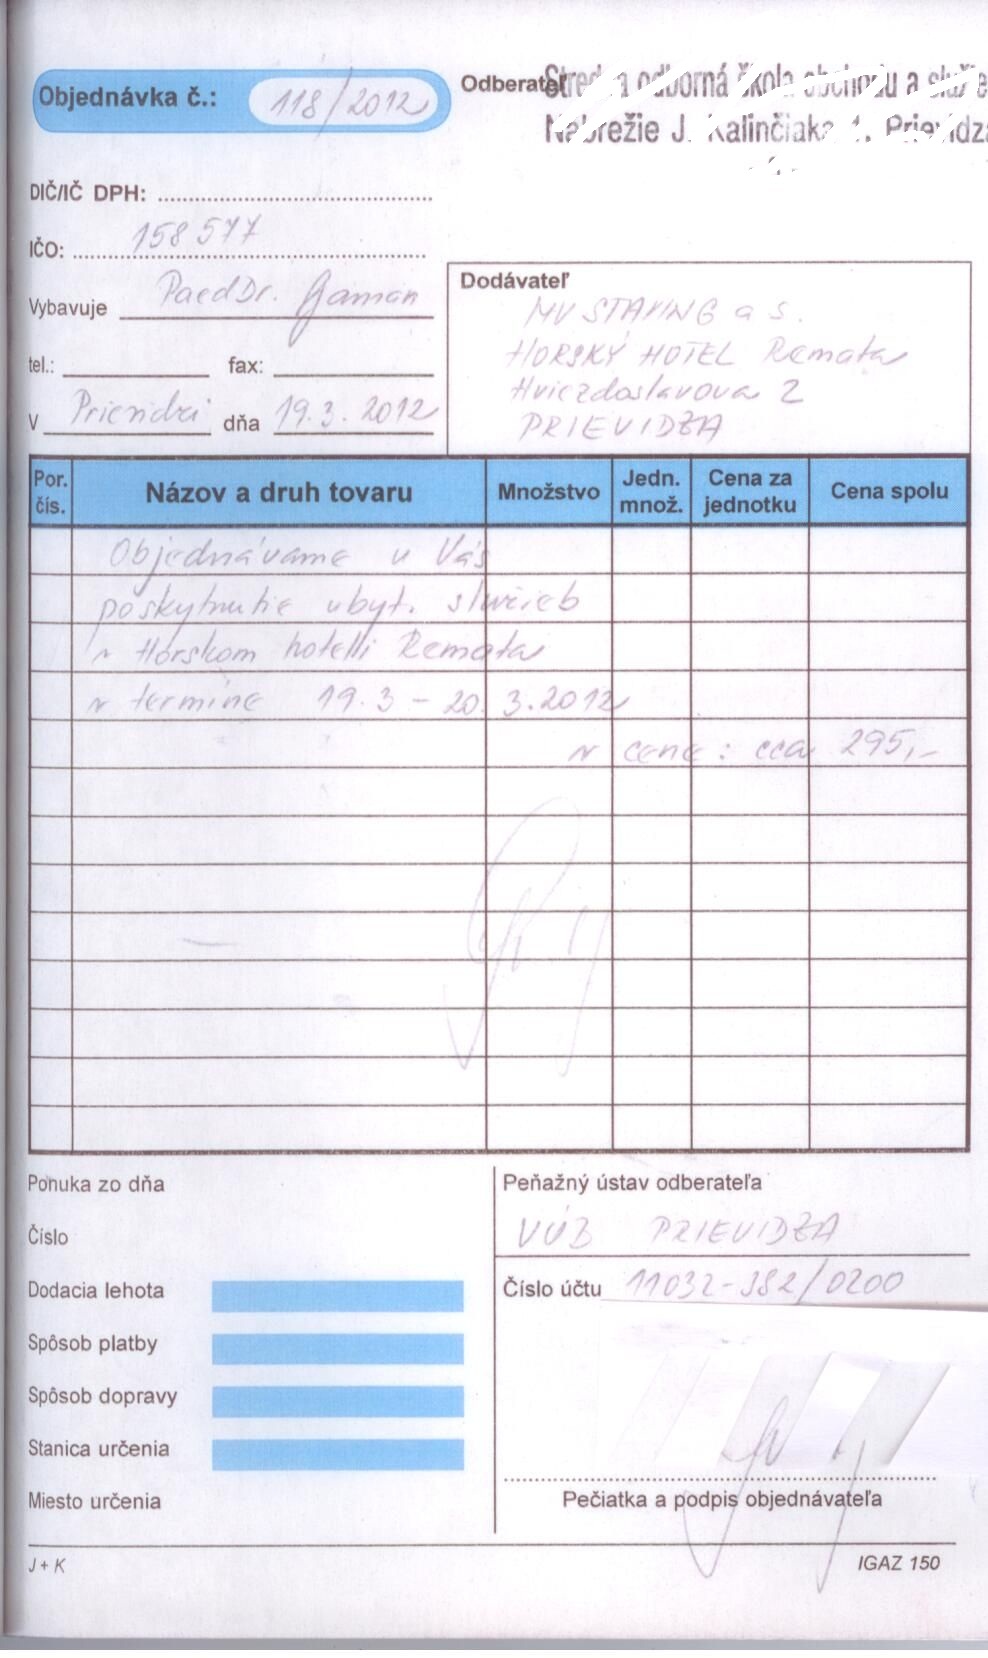 Objednávka č.: 118/2012
Odberateľ Stredná odborná škola obchodu a služie
Nábrežie J. Kalinčiaka 1, Prievidza
DIČ/IČ DPH:
IČO: 158577
Vybavuje PaedDr.
tel.: fax:
V Prievidzi dňa 19.3.2012
Dodávateľ
MV STAVING a s.
HORSKÝ HOTEL Remata
Hviezdoslavova 2
PRIEVIDZA
Por. čís. Názov a druh tovaru Množstvo Jedn. množ. Cena za jednotku Cena spolu
Objednávame u Vás
poskytnutie ubyt. služieb
v Horskom hotelli Remata
v termíne 19.3 - 20.3.2012
v cene: cca 295,-
Ponuka zo dňa
Číslo
Dodacia lehota
Spôsob platby
Spôsob dopravy
Stanica určenia
Miesto určenia
Peňažný ústav odberateľa
VÚB PRIEVIDZA
Číslo účtu 11032-382/0200
Pečiatka a podpis objednávateľa
J + K
IGAZ 150